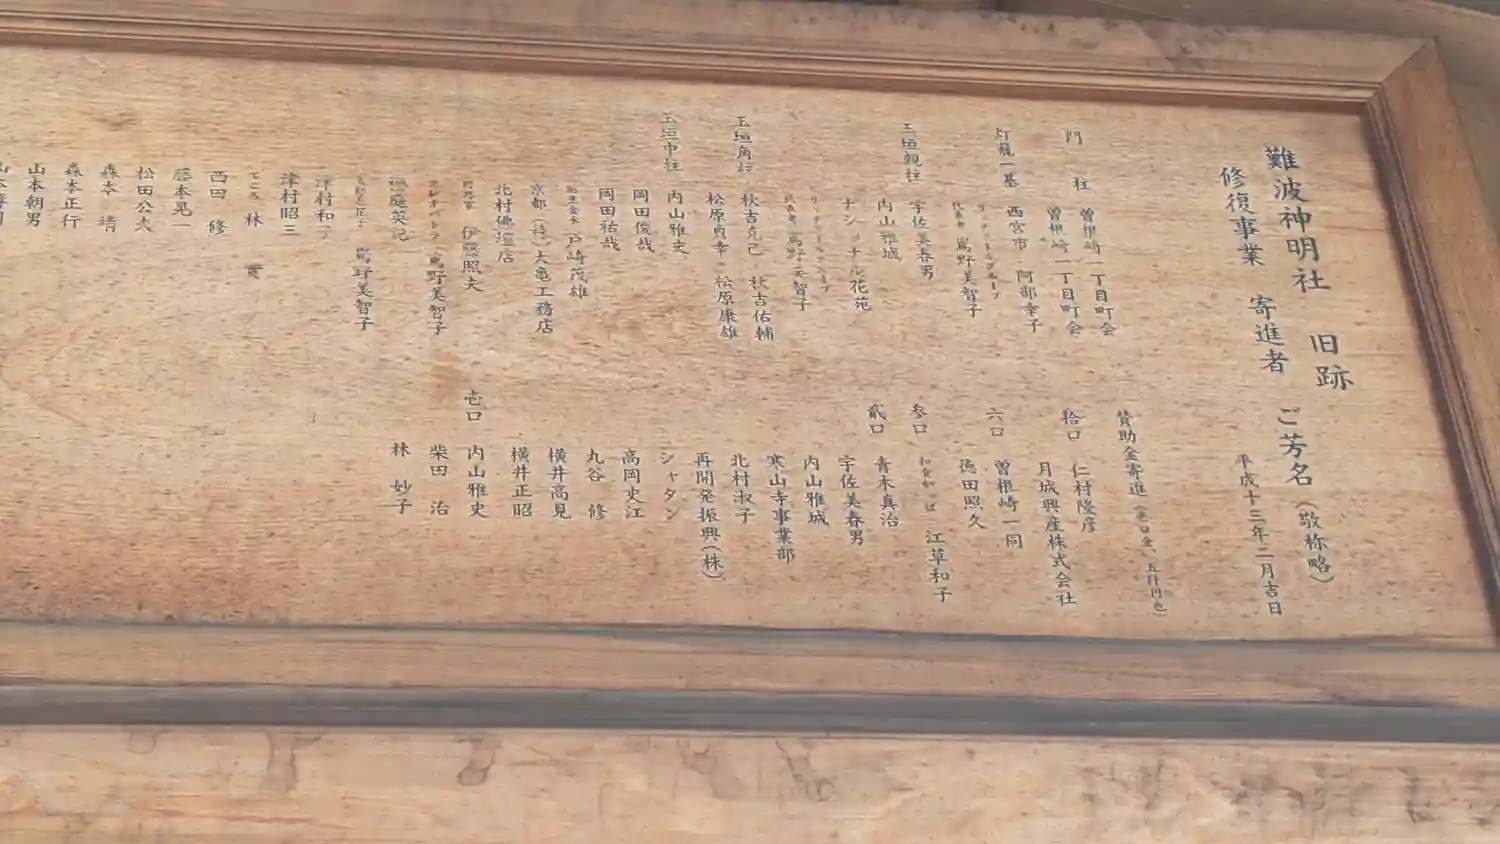 難波神明社 旧跡
修復事業 寄進者 ご芳名(敬称略)
平成十三年二月吉日
門 柱 曽根崎一丁目町会
曽根崎一丁目町会
灯籠一基 西宮市 阿部幸子
代表者 嶌野美智子
玉垣親柱 宇佐美春男
内山雅城
ナショナル花苑
代表者 嶌野美智子
玉垣角柱 秋吉克己 秋吉佑輔
松原貞幸・松原康雄
玉垣中柱 内山雅史
岡田俊哉
岡田祐哉
戸崎茂雄
京都(株)大亀工務店
北村佛壇店
伊藤照夫
クレオパトラ 嶌野美智子
英記
嶌野美智子
津村和
津村昭三
林
西田 修
藤本晃一
松田公夫
森本 清
森本正行
山本朝男
賛助金寄進(壱口金、五阡円也)
拾口 仁村隆彦
月城興産株式会社
六口 曽根崎一同
徳田照久
参口 江草和子
貳口 青木真治
宇佐美春男
内山雅城
寒山寺事業部
北村淑子
再開発振興(株)
シャタン
高岡史江
丸谷 修
横井高見
横井正昭
壱口 内山雅史
柴田 治
林 妙子